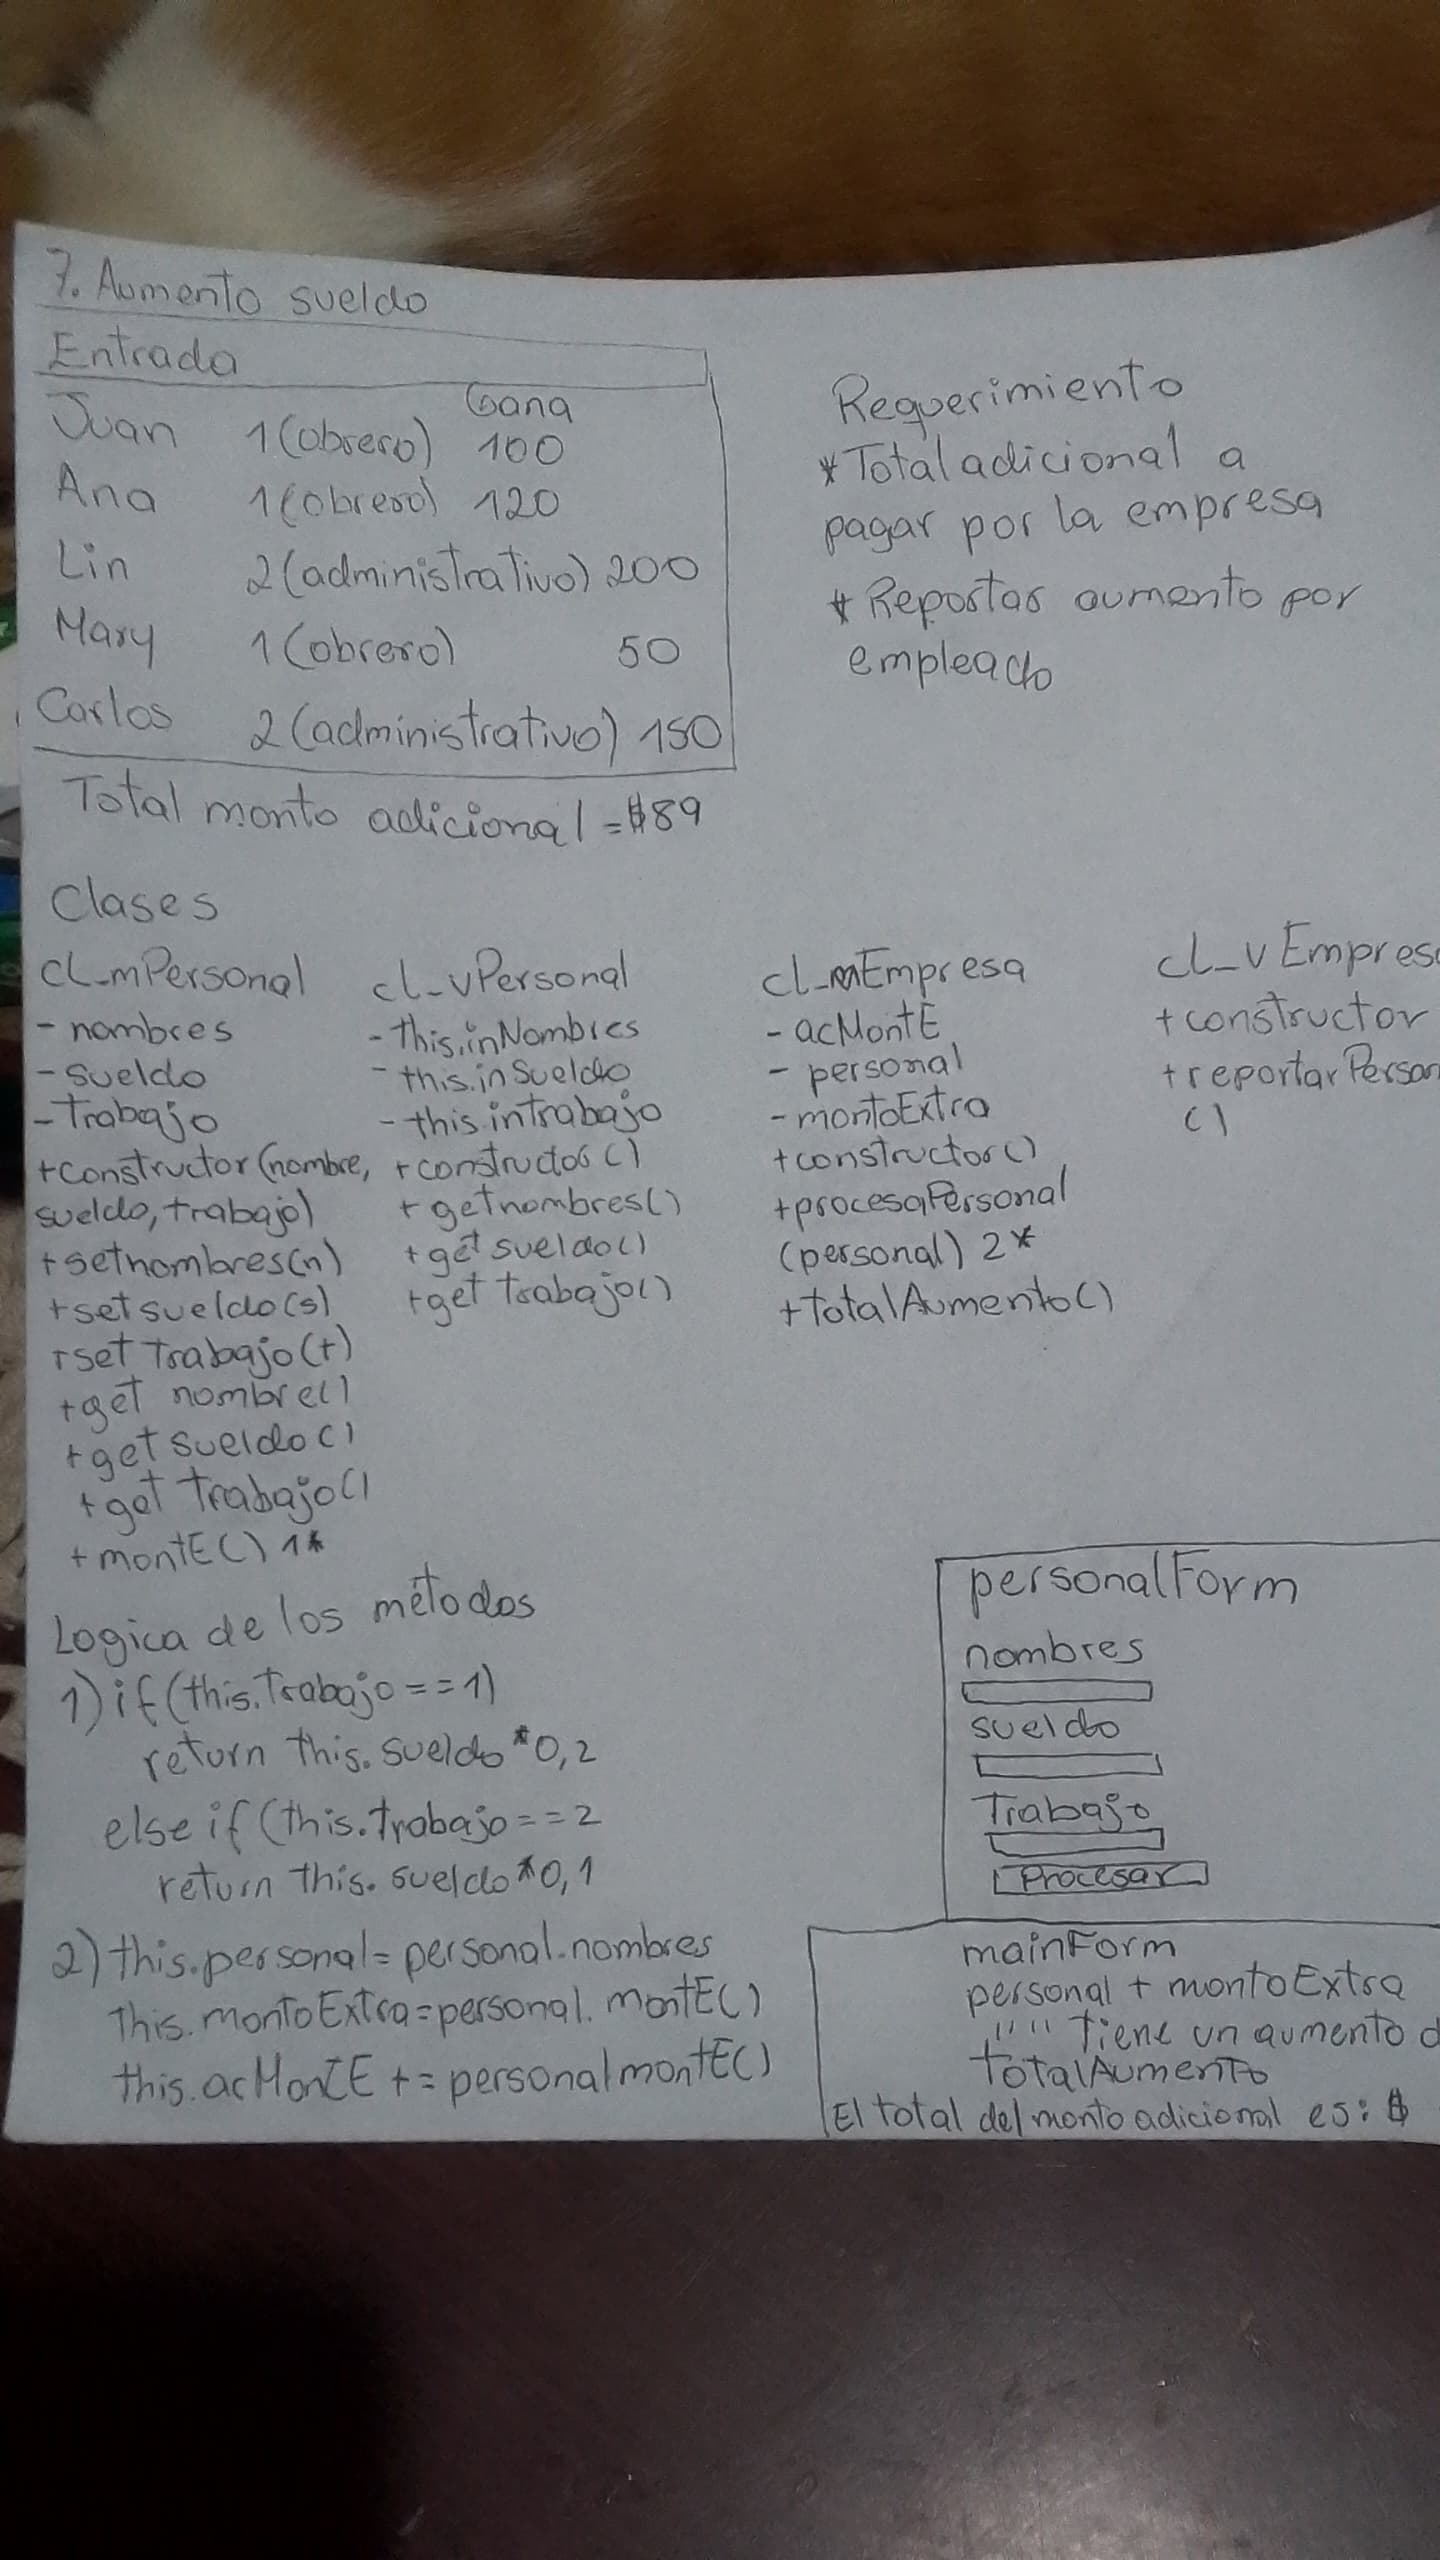 7. Aumento sueldo
Entrada
Gana
Juan 1(obrero) 100
Ana 1(obrero) 120
Lin 2(administrativo) 200
Mary 1(obrero) 50
Carlos 2(administrativo) 150
Total monto adicional = $89
Requerimiento
* Total adicional a
pagar por la empresa
* Reportar aumento por
empleado
Clases
cl_mPersonal
- nombres
- sueldo
- Trabajo
+constructor(nombre,
sueldo, trabajo)
+setnombres(n)
+setsueldo(s)
+set Trabajo(t)
+get nombre()
+get sueldo()
+get Trabajo()
+montE() 1*
cl_vPersonal
- this.inNombres
- this.inSueldo
- this.intrabajo
+constructor()
+getnombres()
+get sueldo()
+get Trabajo()
cl_mEmpresa
- acMontE
- personal
- montoExtra
+constructor()
+procesaPersonal
(personal) 2*
+TotalAumento()
cl_vEmpresa
+constructor
+reportarPerson
()
Logica de los métodos
1) if (this.Trabajo == 1)
return this.sueldo*0,2
else if (this.trabajo == 2
return this.sueldo*0,1
2) this.personal = personal.nombres
this.montoExtra = personal.montE()
this.acMontE += personalmontE()
personalForm
nombres
sueldo
Trabajo
Procesar
mainForm
personal + montoExtra
"" "" Tiene un aumento d
TotalAumento
El total del monto adicional es: $